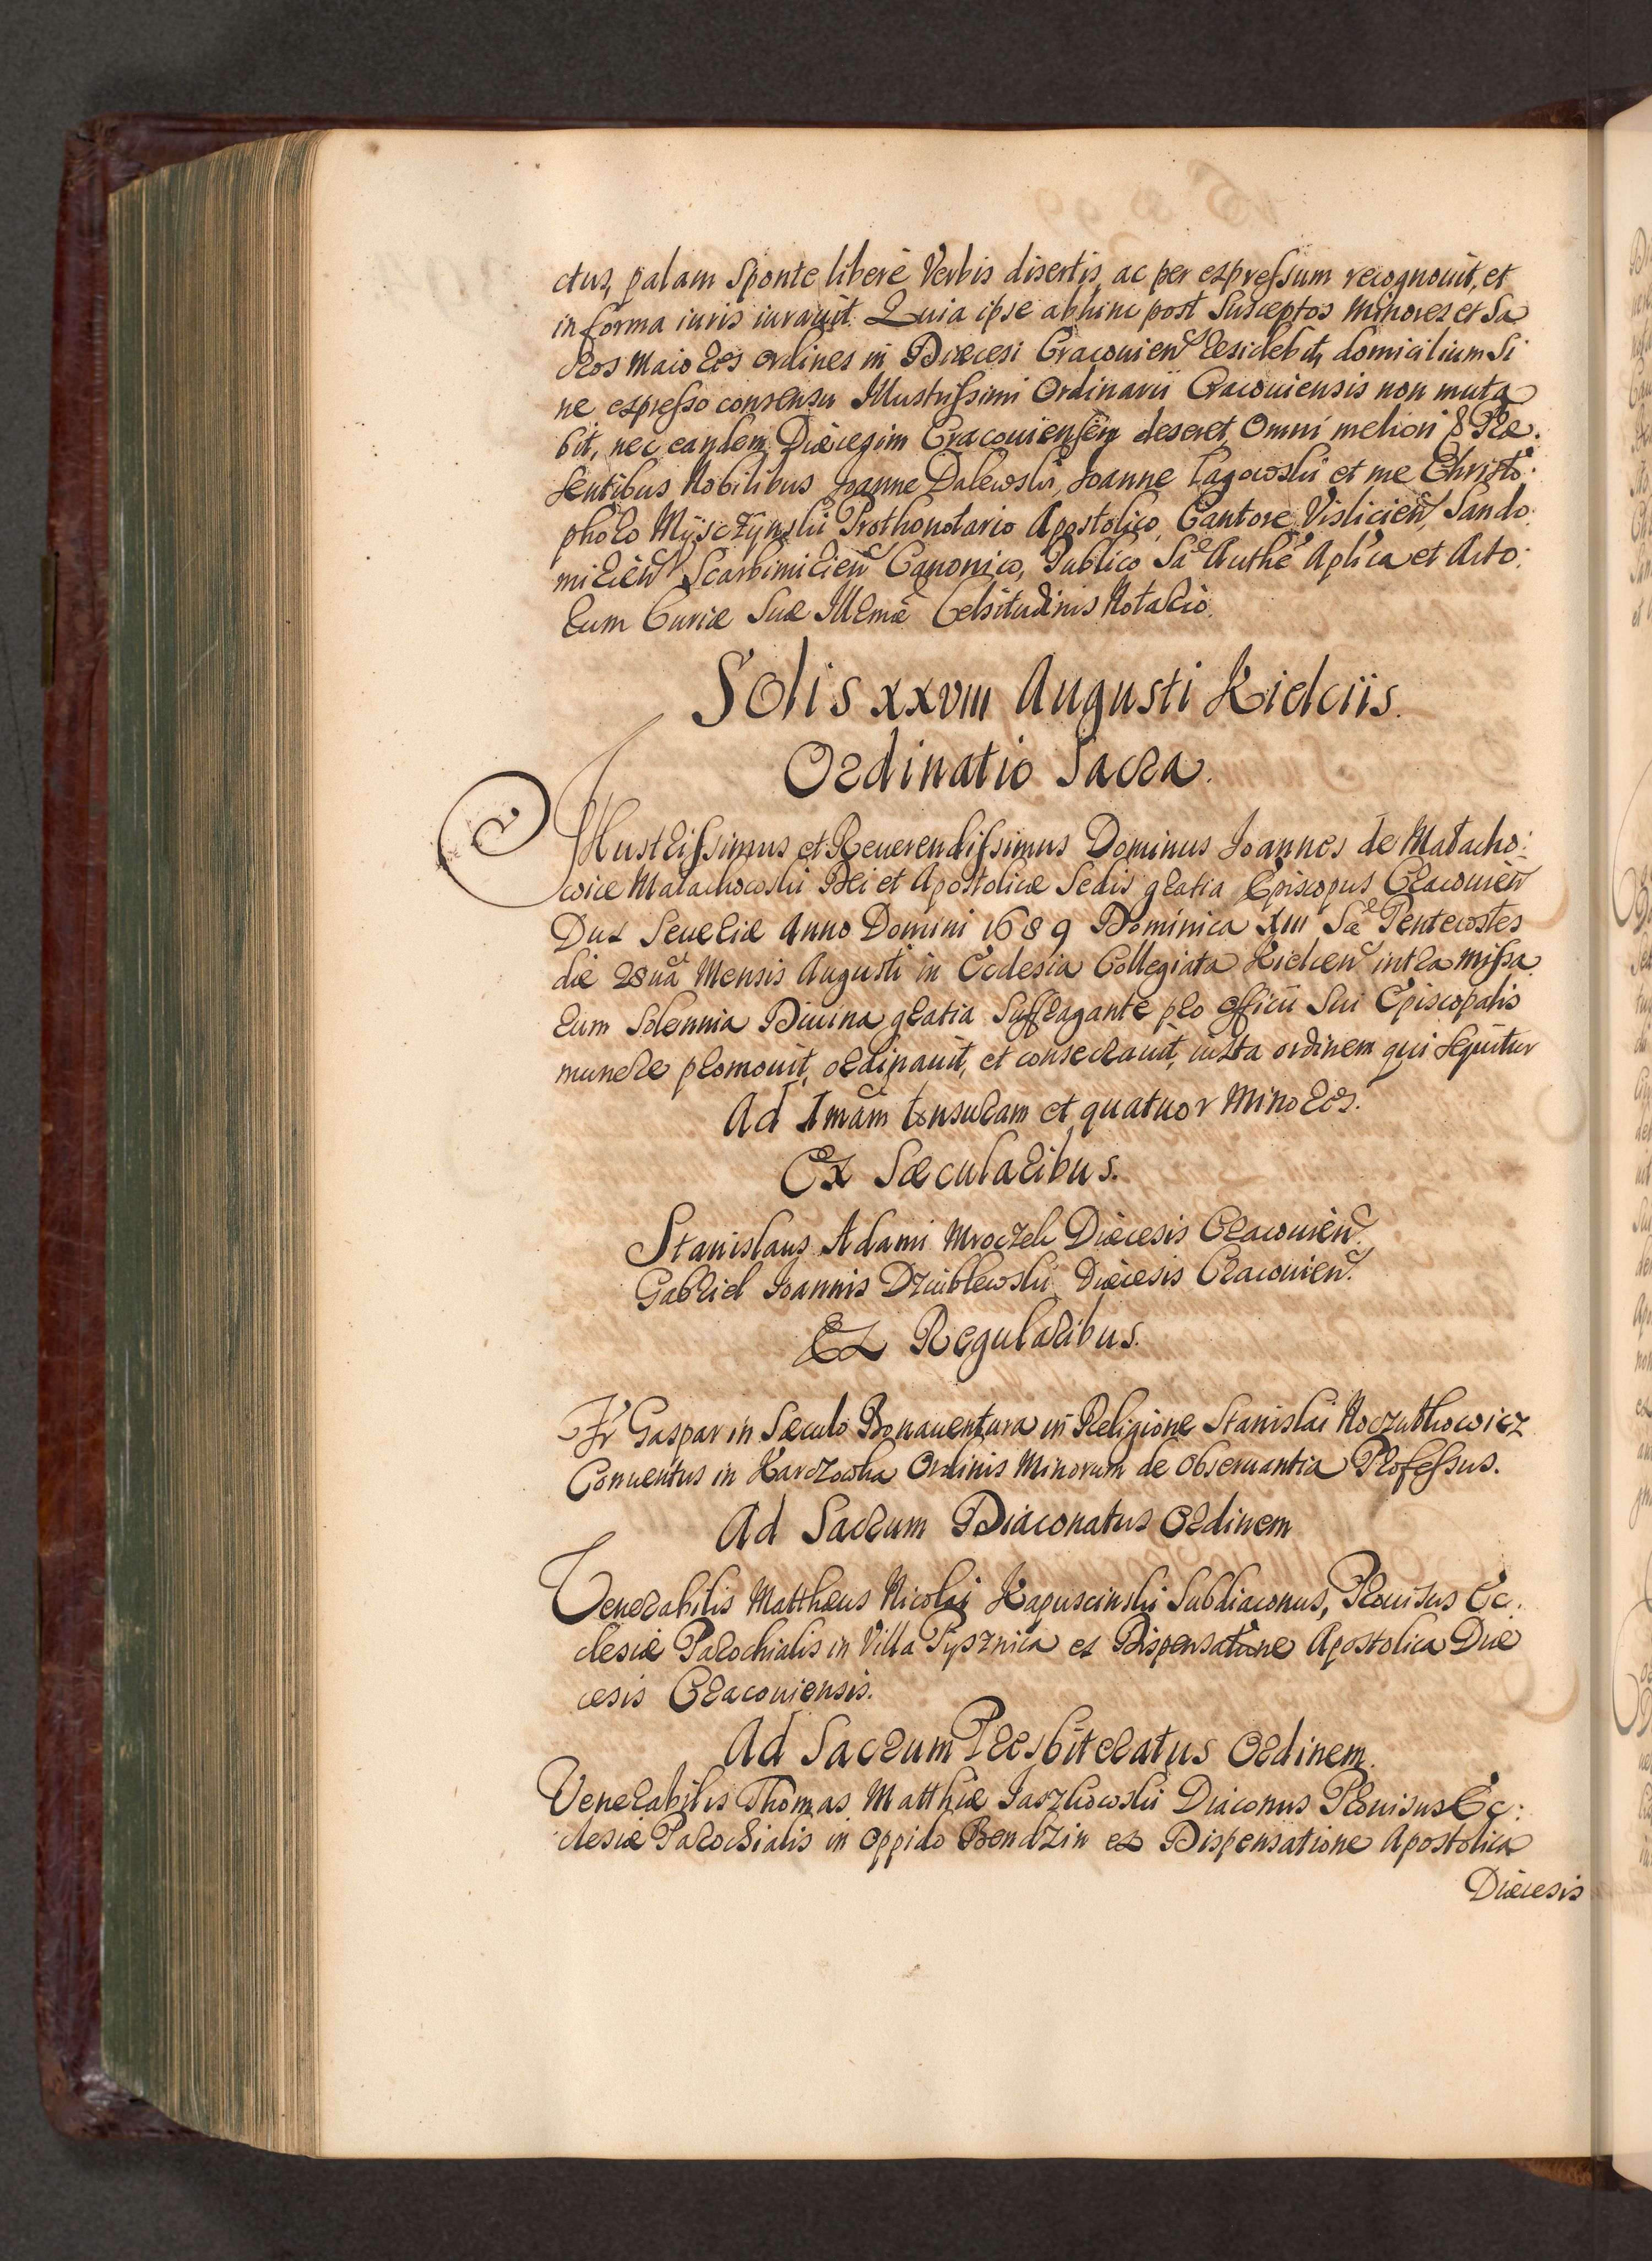 ctus, palam sponte liberè Verbis disertis, ac per expressum recognouit, et
in forma iuris iurauit. Quia ipse abhinc post Susceptos Minores et Sa
cros Maiores ordines in Diæcesi Cracouien residebit, domicilium Si
ne expresso consensu Illustrissimi Ordinarii Cracouiensis non muta
bit, nec eandem Diæcesim Cracouiensem deseret, Omni meliori & Præ.
sentibus Nobilibus Joanne Dalewski, Joanne Łagowski et me Christo:
phoro Myisczynski Prothonotario Apostolico, Cantore Vislicien, Sando:
mirien Scarbimirien Canonico, Publico Sa Authe Aplica et Acto:
rum Curiæ Suæ Illmæ Celsitudinis Notario.
Solis XXVIII Augusti Kielciis.
Ordinatio Sacra.
Illustrissimus et Reuerendissimus Dominus Joannes de Małacho:
wice Małachowski Dei et Apostolicæ Sedis gratia Episcopus Cracouien
Dux Seueriæ Anno Domini 1689 Dominica XIII Sæ Pentecostes
die 28ua Mensis Augusti in Ecclesia Collegiata Kielcen intra missa
rum Solennia Diuina gratia Suffragante pro officii Sui Episcopalis
munere promouit, ordinauit, et consecrauit, iuxta ordinem qui sequitur
Ad Imam tonsuram et quatuor Minores.
Ex Sæcularibus.
Stanislaus Adami Mroczek Diæcesis Cracouien.
Gabriel Joannis Dziublewski Diæcesis Cracouien.
Ex Regularibus.
Fr Gaspar in Sæculo Bonauentura in Religione Stanislai Koczutkowicz
Conuentus in Karczowka Ordinis Minorum de Obseruantia Professus.
Ad Sacrum Diaconatus Ordinem
Venerabilis Matthæus Nicolai Kapuscinski Subdiaconus, Prouisus Ec:
clesiæ Parochialis in Villa Pysznica ex Dispensatione Apostolica Diæ
cesis Cracouiensis.
Ad Sacrum Presbiteratus Ordinem.
Venerabilis Thomas Matthiæ Jaszkowski Diaconus Prouisus Ec:
clesiæ Parochialis in oppido Bendzin ex Dispensatione Apostolica
Diæcesis